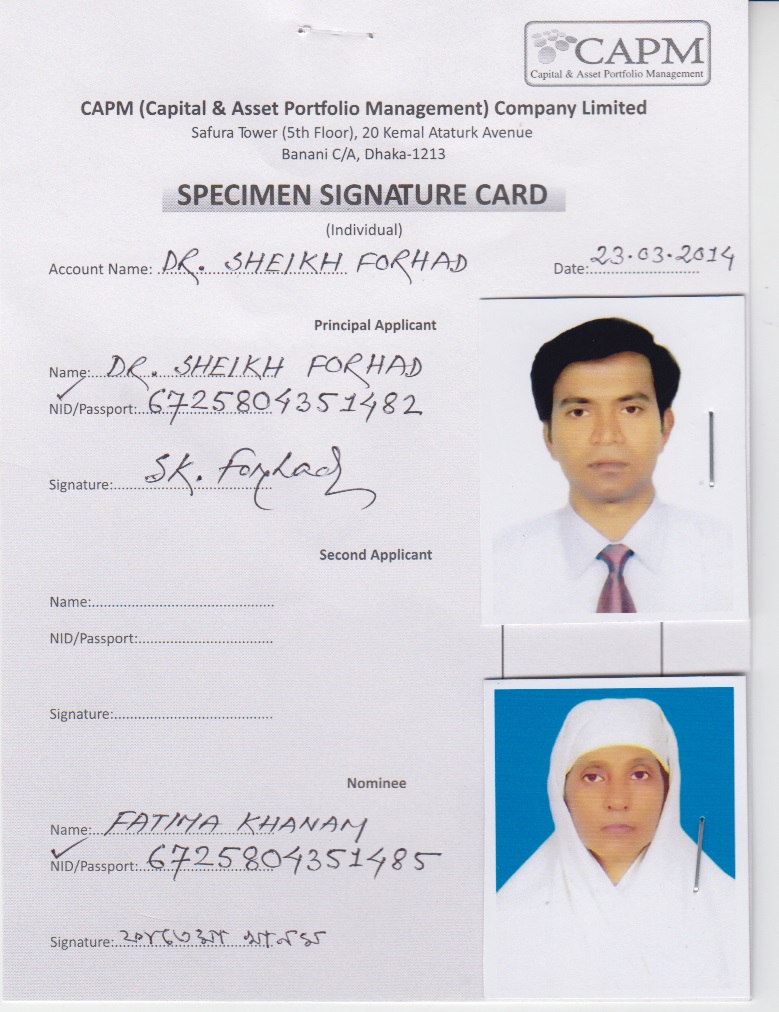 CAPM
Capital & Asset Portfolio Management
CAPM (Capital & Asset Portfolio Management) Company Limited
Safura Tower (5th Floor), 20 Kemal Ataturk Avenue
Banani C/A, Dhaka-1213
SPECIMEN SIGNATURE CARD
(Individual)
Account Name: DR. SHEIKH FORHAD Date: 23.03.2014
Principal Applicant
Name: DR. SHEIKH FORHAD
NID/Passport: 6725804351482
Signature: SK. Forhad
Second Applicant
Name:
NID/Passport:
Signature:
Nominee
Name: FATIMA KHANAM
NID/Passport: 6725804351485
Signature: